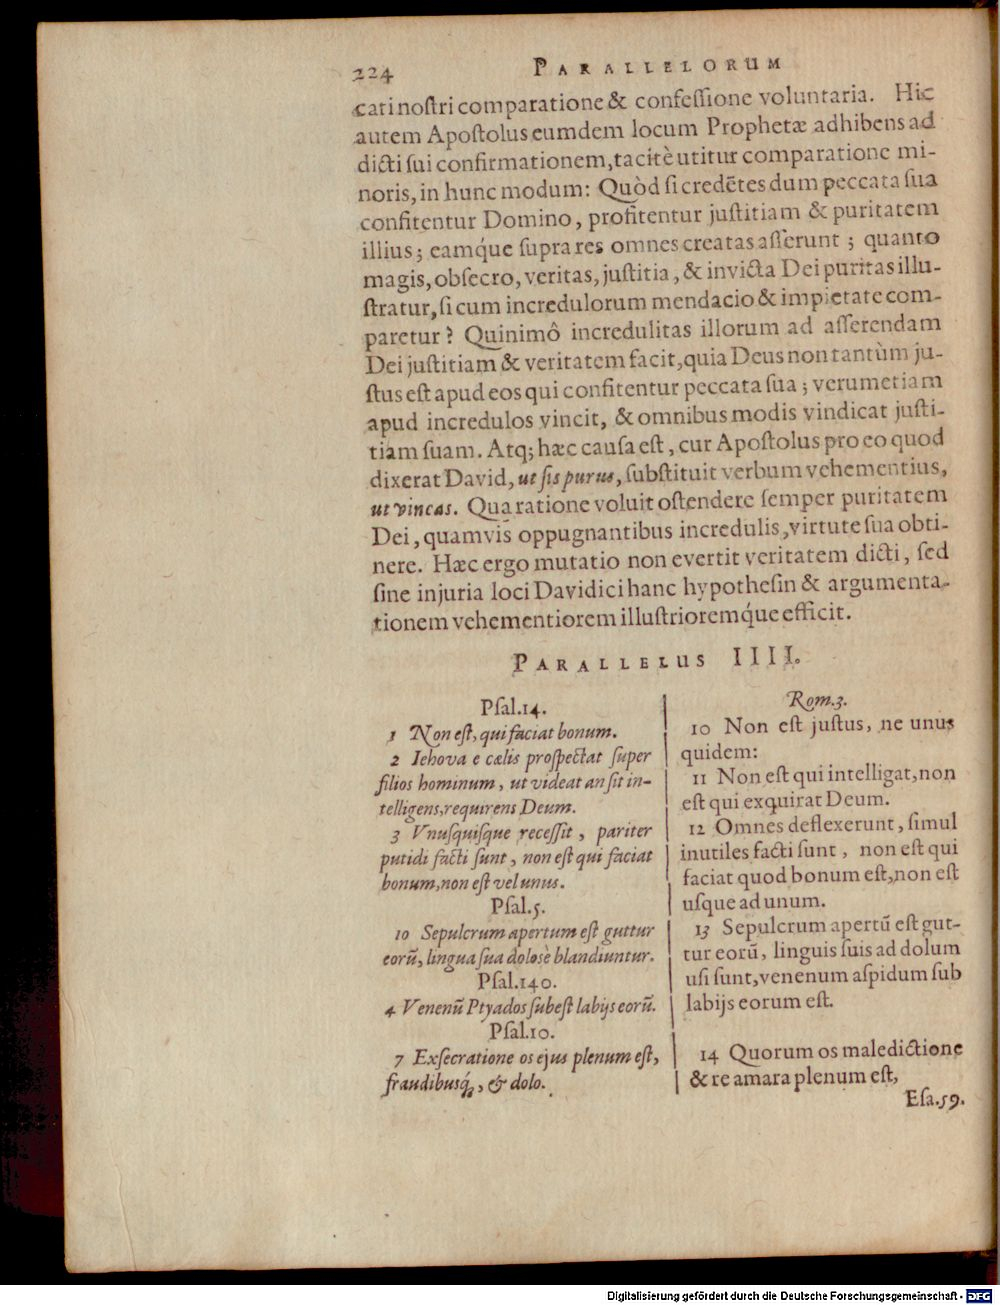 224 PARALLELORUM
cati nostri comparatione & confessione voluntaria. Hic
autem Apostolus eumdem locum Prophetæ adhibens ad
dicti sui confirmationem, tacitè utitur comparatione mi-
noris, in hunc modum: Quòd si credētes dum peccata sua
confitentur Domino, profitentur justitiam & puritatem
illius; eamq́ue supra res omnes creatas asserunt; quanto
magis, obsecro, veritas, justitia, & invicta Dei puritas illu-
stratur, si cum incredulorum mendacio & impietate com-
paretur? Quinimô incredulitas illorum ad asserendam
Dei justitiam & veritatem facit, quia Deus non tantùm ju-
stus est apud eos qui confitentur peccata sua; verumetiam
apud incredulos vincit, & omnibus modis vindicat justi-
tiam suam. Atq; hæc causa est, cur Apostolus pro eo quod
dixerat David, ut sis purus, substituit verbum vehementius,
ut vincas. Qua ratione voluit ostendere semper puritatem
Dei, quamvis oppugnantibus incredulis, virtute sua obti-
nere. Hæc ergo mutatio non evertit veritatem dicti, sed
sine injuria loci Davidici hanc hypothesin & argumenta-
tionem vehementiorem illustrioremq́ue efficit.
PARALLELUS IIII.
Psal.14.
1 Non est, qui faciat bonum.
2 Iehova e cælis prospectat super
filios hominum, ut videat an sit in-
telligens, requirens Deum.
3 Vnusquisque recessit, pariter
putidi facti sunt, non est qui faciat
bonum, non est vel unus.
Psal.5.
10 Sepulcrum apertum est guttur
eorū, lingua sua dolosè blandiuntur.
Psal.140.
4 Venenū Ptyados subest labijs eorū.
Psal.10.
7 Exsecratione os ejus plenum est,
fraudibusq́, & dolo.
Rom.3.
10 Non est justus, ne unus
quidem:
11 Non est qui intelligat, non
est qui exquirat Deum.
12 Omnes deflexerunt, simul
inutiles facti sunt, non est qui
faciat quod bonum est, non est
usque ad unum.
13 Sepulcrum apertū est gut-
tur eorū, linguis suis ad dolum
usi sunt, venenum aspidum sub
labijs eorum est.
14 Quorum os maledictione
& re amara plenum est,
Esa.59.
Digitalisierung gefördert durch die Deutsche Forschungsgemeinschaft - DFG